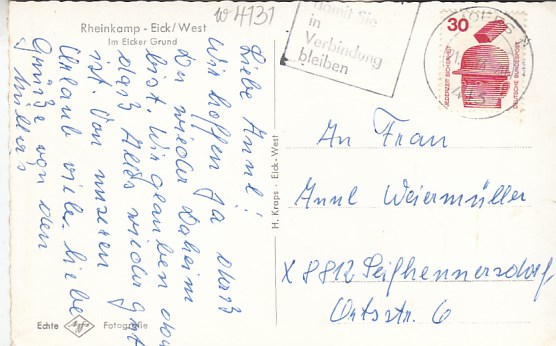 Rheinkamp - Eick/West
Im Eicker Grund
w 4131
Liebe Annl!
Wir hoffen ja daß
Du wieder Daheim
bist. Wir glauben
daß Alles wieder gut
ist. Von unseren
Urlaub viele liebe
Grüße von den
Müller's
Echte Agfa Fotografie
H. Kraps · Eick-West
damit Sie
in
Verbindung
bleiben
30
JEDERZEIT SICHERHEIT
DEUTSCHE BUNDESPOST
An Frau
Annl Weiermüller
X 8812 Seifhennersdorf
Ortsstr. 6